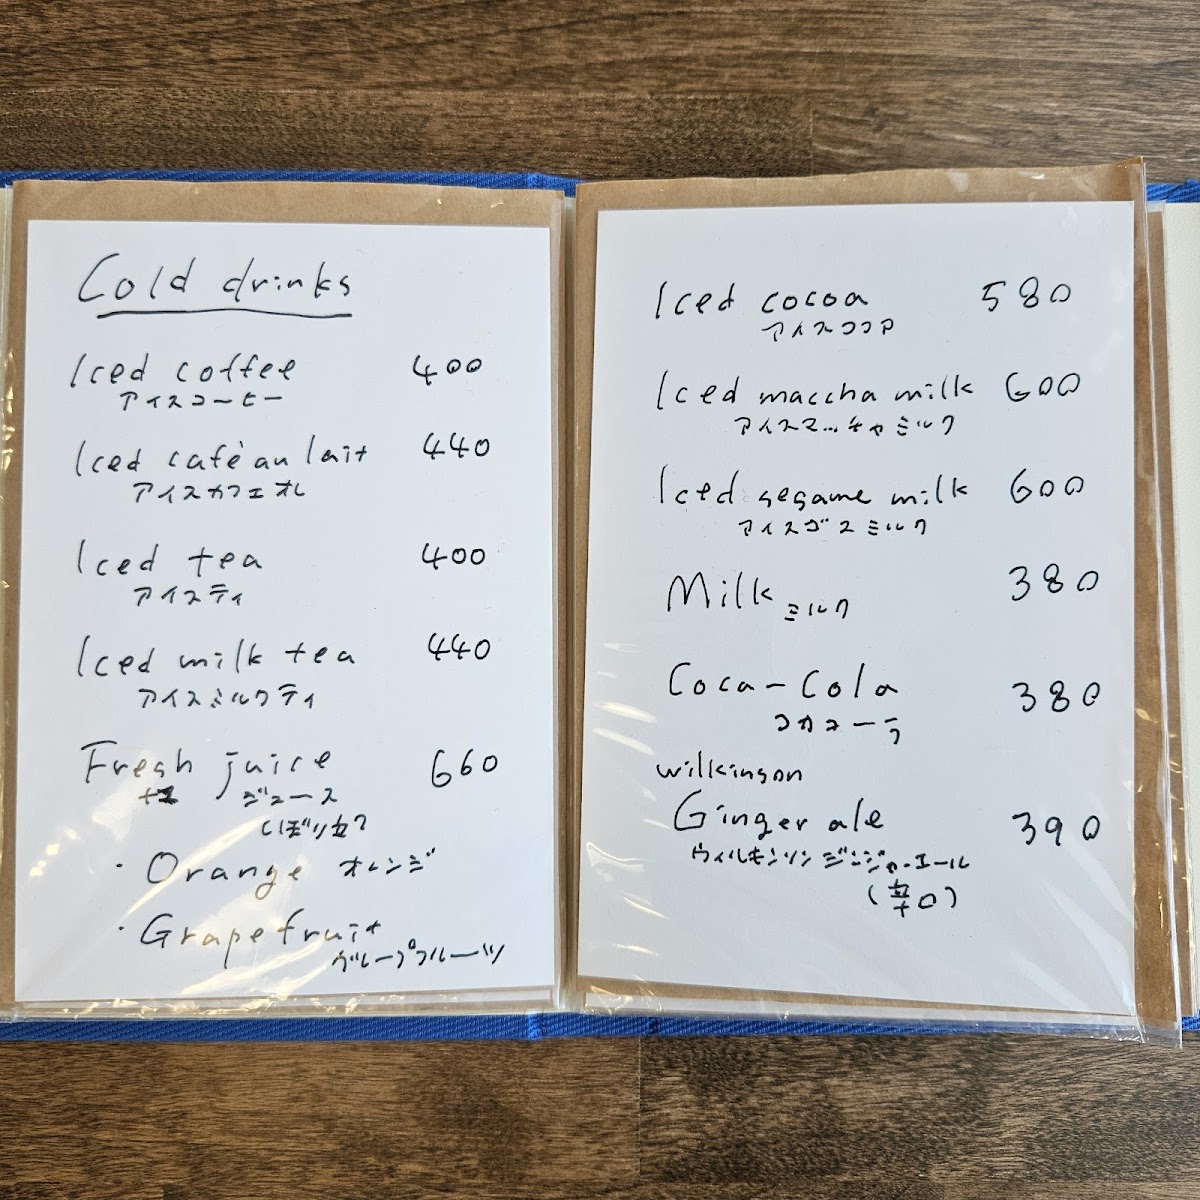 Cold drinks
Iced coffee 400
アイスコーヒー
Iced cafe au lait 440
アイスカフェオレ
Iced tea 400
アイスティ
Iced milk tea 440
アイスミルクティ
Fresh juice 660
生 ジュース
しぼり立て
・Orange オレンジ
・Grapefruit
グレープフルーツ
Iced cocoa 580
アイスココア
Iced maccha milk 600
アイスマッチャミルク
Iced sesame milk 600
アイスゴマミルク
Milk ミルク 380
Coca-Cola 380
コカコーラ
wilkinson
Ginger ale 390
ウィルキンソン ジンジャーエール
(辛口)